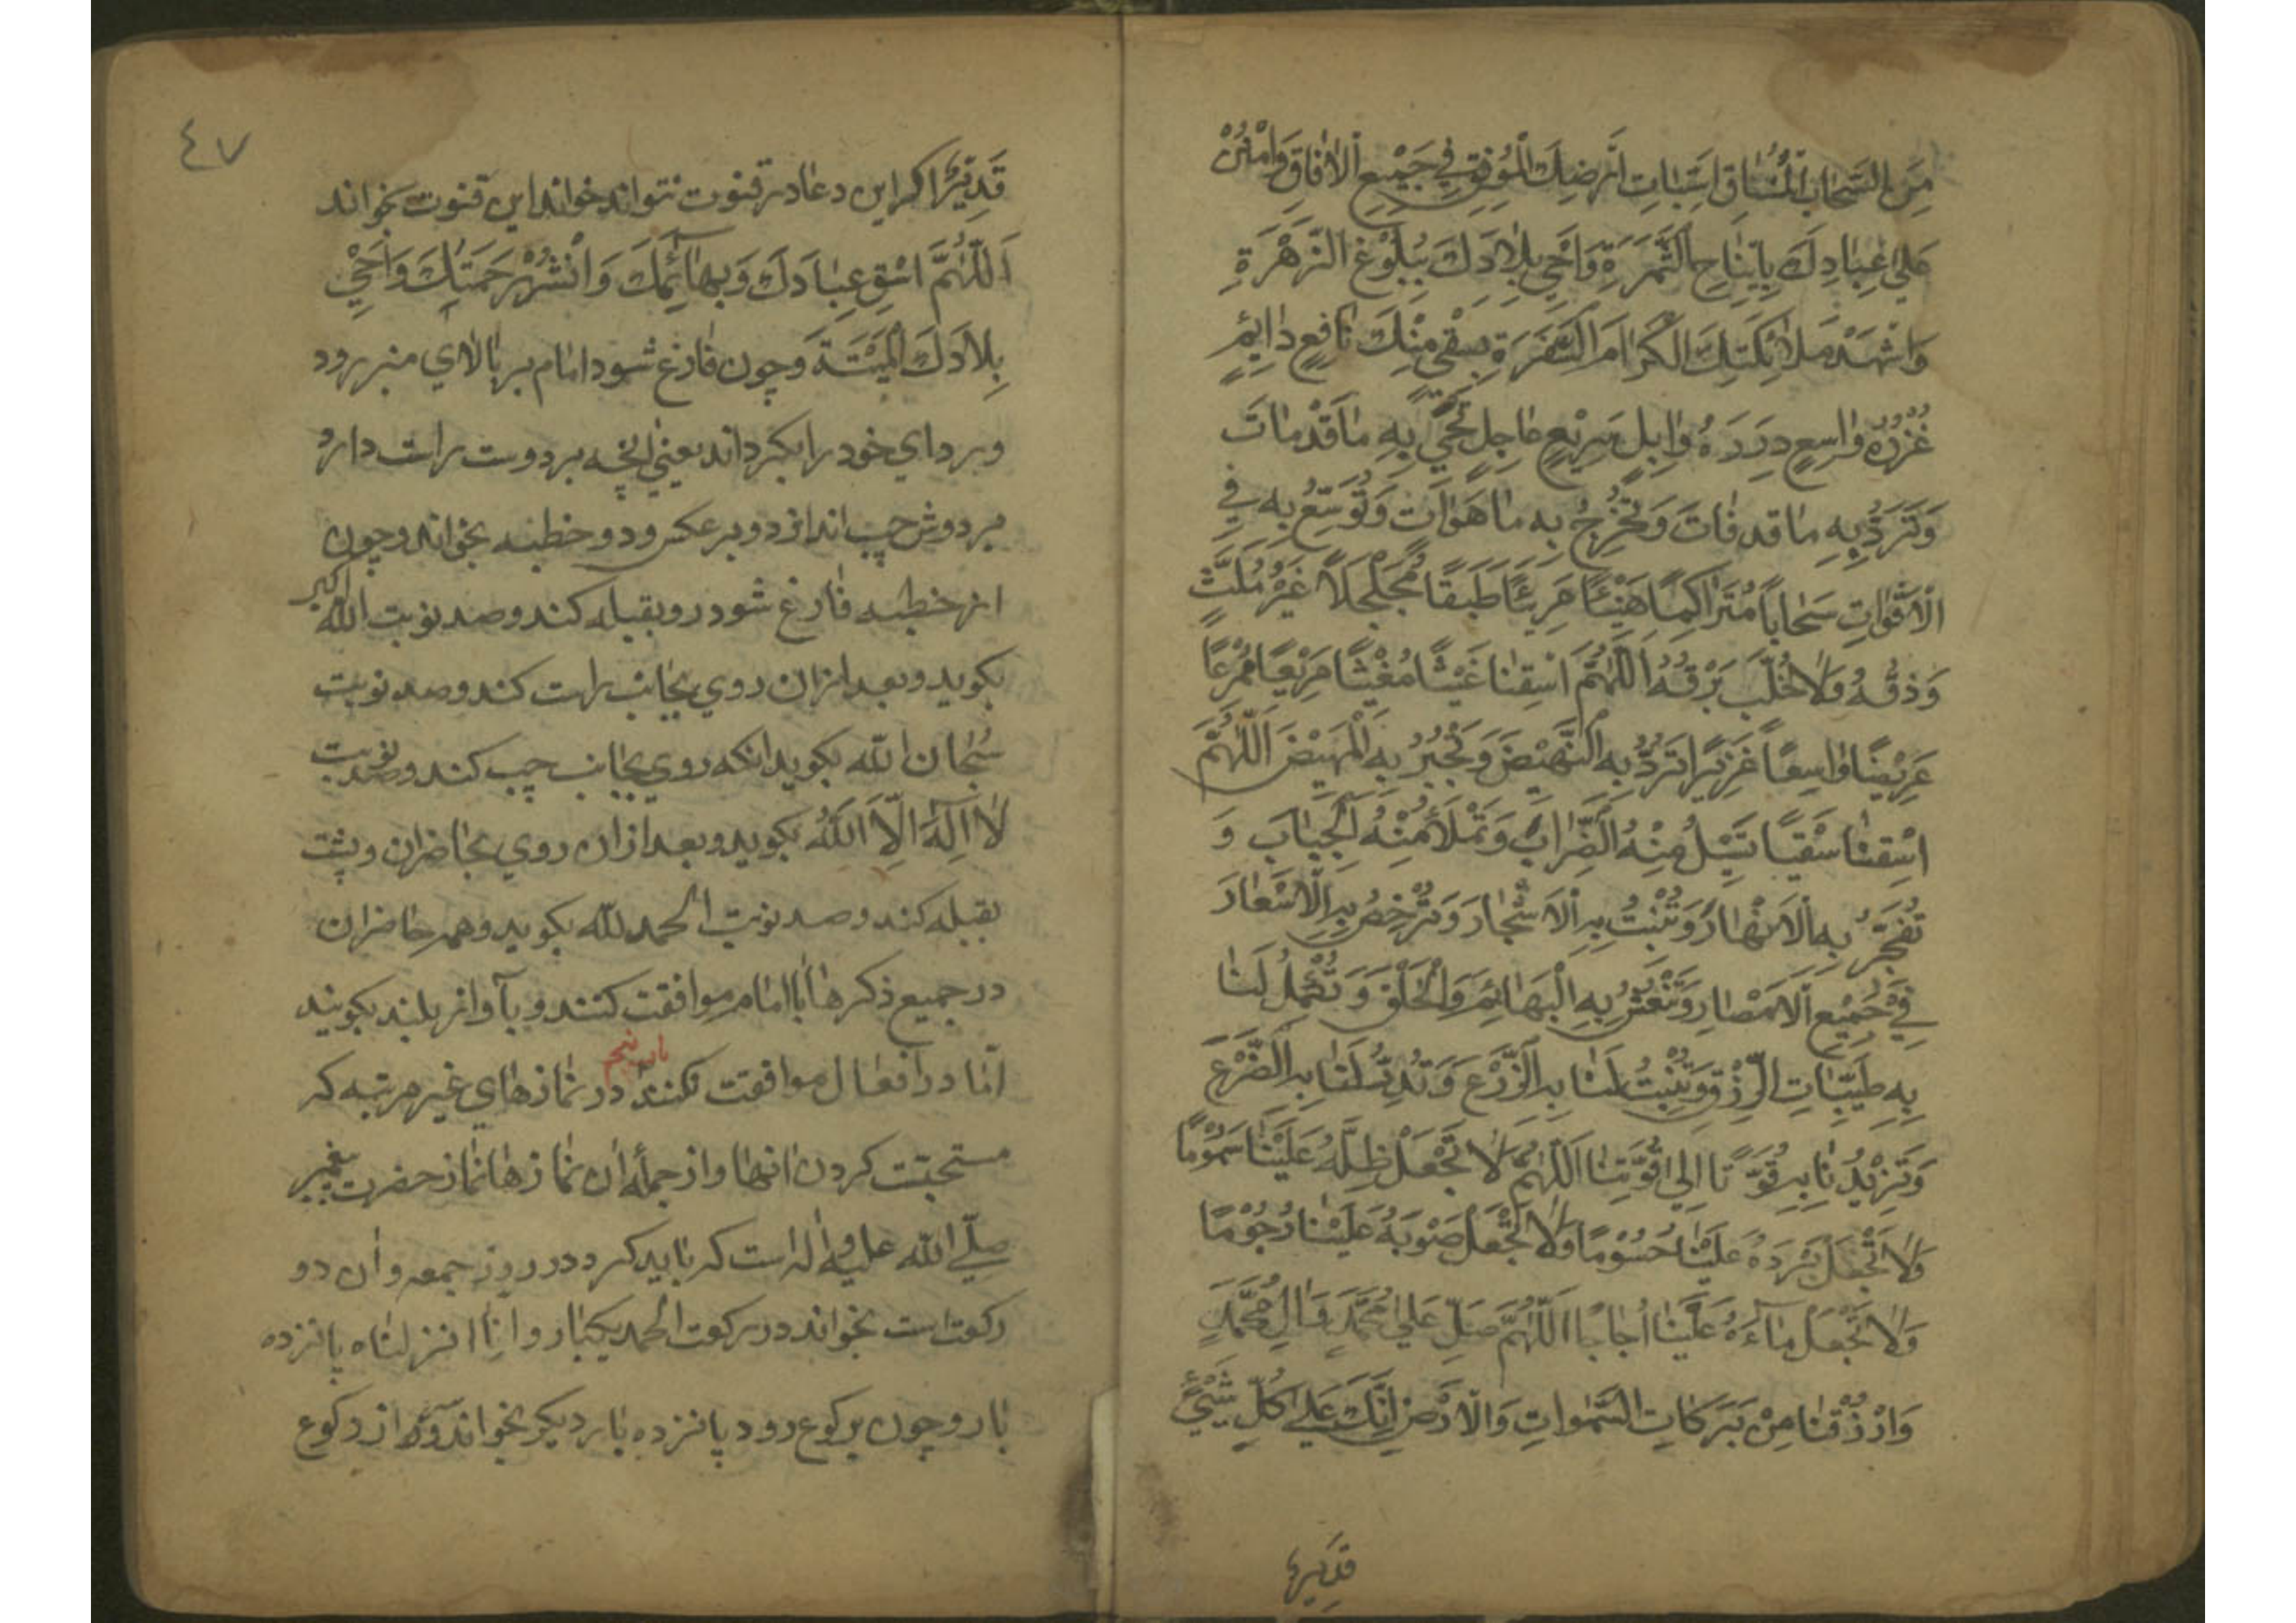 مِنَ السَّحَابِ الْمُنْسَاقِ لِنَبَاتِ اَرْضِكَ الْمُونِقِ فِي جَمِيْعِ الْاٰفَاقِ وَامْنُنْ
عَلٰي عِبَادِكَ بِاِيْنَاعِ الثَّمَرَةِ وَاَحْيِ بِلَادَكَ بِبُلُوْغِ الزَّهْرَةِ
وَاَشْهِدْ مَلَائِكَتَكَ الْكِرَامَ السَّفَرَةَ بِسَقْيٍ مِنْكَ نَافِعٍ دَائِمٍ
غُزْرُهُ وَاسِعٍ دِرَرُهُ وَابِلٍ سَرِيْعٍ عَاجِلٍ تُحْيِيْ بِهِ مَا قَدْ مَاتَ
وَتَرُدُّ بِهِ مَا قَدْ فَاتَ وَتُخْرِجُ بِهِ مَا هُوَ اٰتٍ وَتُوَسِّعُ بِهِ فِي
الْاَقْوَاتِ سَحَاباً مُتَرَاكِمًا هَنِيْئًا مَرِيْئًا طَبَقًا مُجَلْجَلًا غَيْرَ مُلِثٍّ
وَدْقُهُ وَلَا خُلَّبٍ بَرْقُهُ اَللّٰهُمَّ اسْقِنَا غَيْثًا مُغِيْثًا مَرِيْعًا مُمْرِعًا
عَرِيْضًا وَاسِعًا غَزِيْرًا تَرُدُّ بِهِ النَّهِيْضَ وَتَجْبُرُ بِهِ الْمَهِيْضَ اَللّٰهُمَّ
اسْقِنَا سَقْيًا تُسِيْلُ مِنْهُ الضِّرَابَ وَتَمْلَأُ مِنْهُ الْجِبَابَ وَ
تُفَجِّرُ بِهِ الْاَنْهَارَ وَتُنْبِتُ بِهِ الْاَشْجَارَ وَتُرْخِصُ بِهِ الْاَسْعَارَ
فِيْ جَمِيْعِ الْاَمْصَارِ وَتَنْعَشُ بِهِ الْبَهَائِمَ وَالْخَلْقَ وَتُكْمِلُ لَنَا
بِهِ طَيِّبَاتِ الرِّزْقِ وَتُنْبِتُ لَنَا بِهِ الزَّرْعَ وَتُدِرُّ لَنَا بِهِ الضَّرْعَ
وَتَزِيْدُنَا بِهِ قُوَّةً اِلٰي قُوَّتِنَا اَللّٰهُمَّ لَا تَجْعَلْ ظِلَّهُ عَلَيْنَا سَمُوْمًا
وَلَا تَجْعَلْ بَرْدَهُ عَلَيْنَا حُسُوْمًا وَلَا تَجْعَلْ صَوْبَهُ عَلَيْنَا رُجُوْمًا
وَلَا تَجْعَلْ مَآءَهُ عَلَيْنَا اُجَاجًا اَللّٰهُمَّ صَلِّ عَلٰي مُحَمَّدٍ وَاٰلِ مُحَمَّدٍ
وَارْزُقْنَا مِنْ بَرَكَاتِ السَّمٰوَاتِ وَالْاَرْضِ اِنَّكَ عَلٰي كُلِّ شَيْئٍ
قدير
٤٧
قَدِيْرٌ اكر اين دعا در قنوت نتواند خواند اين قنوت بخواند
اَللّٰهُمَّ اسْقِ عِبَادَكَ وَبَهَائِمَكَ وَانْشُرْ رَحْمَتَكَ وَاَحْيِ
بِلَادَكَ الْمَيْتَةَ وچون فارغ شود امام بر بالاي منبر رود
و رداي خود را بكرداند يعني انچه بر دوست راست دارد
بر دوش چپ اندازد و بر عكس و دو خطبه بخواند و چون
از خطبه فارغ شود رو بقبله كند و صد نوبت الله اكبر
بكويد و بعد ازان روي بجانب راست كند و صد نوبت
سُبحان الله بكويد انكه روي بجانب چپ كند و صد نوبت
لَا اِلٰهَ اِلَّا اللّٰهُ بكويد و بعد ازان روي بحاضران و پشت
بقبله كند و صد نوبت الحمد للّه بكويد و همه حاضران
در جميع ذكرها با امام موافقت كنند و بآواز بلند بكويند
امّا در افعال موافقت نكنند باب پنجم در نمازهاي غير مرتبه كه
مستحبّت كردن انها و از جملهٔ ان نمازها نماز حضرت پيغمبر
صلّي الله عليه و اله است كه بايد كرد در روز جمعه و ان دو
ركعت است بخواند در ركعت الحمد يكبار و انا انزلناه پانزده
بار و چون بركوع رود پانزده بار ديكر بخواند و از ركوع